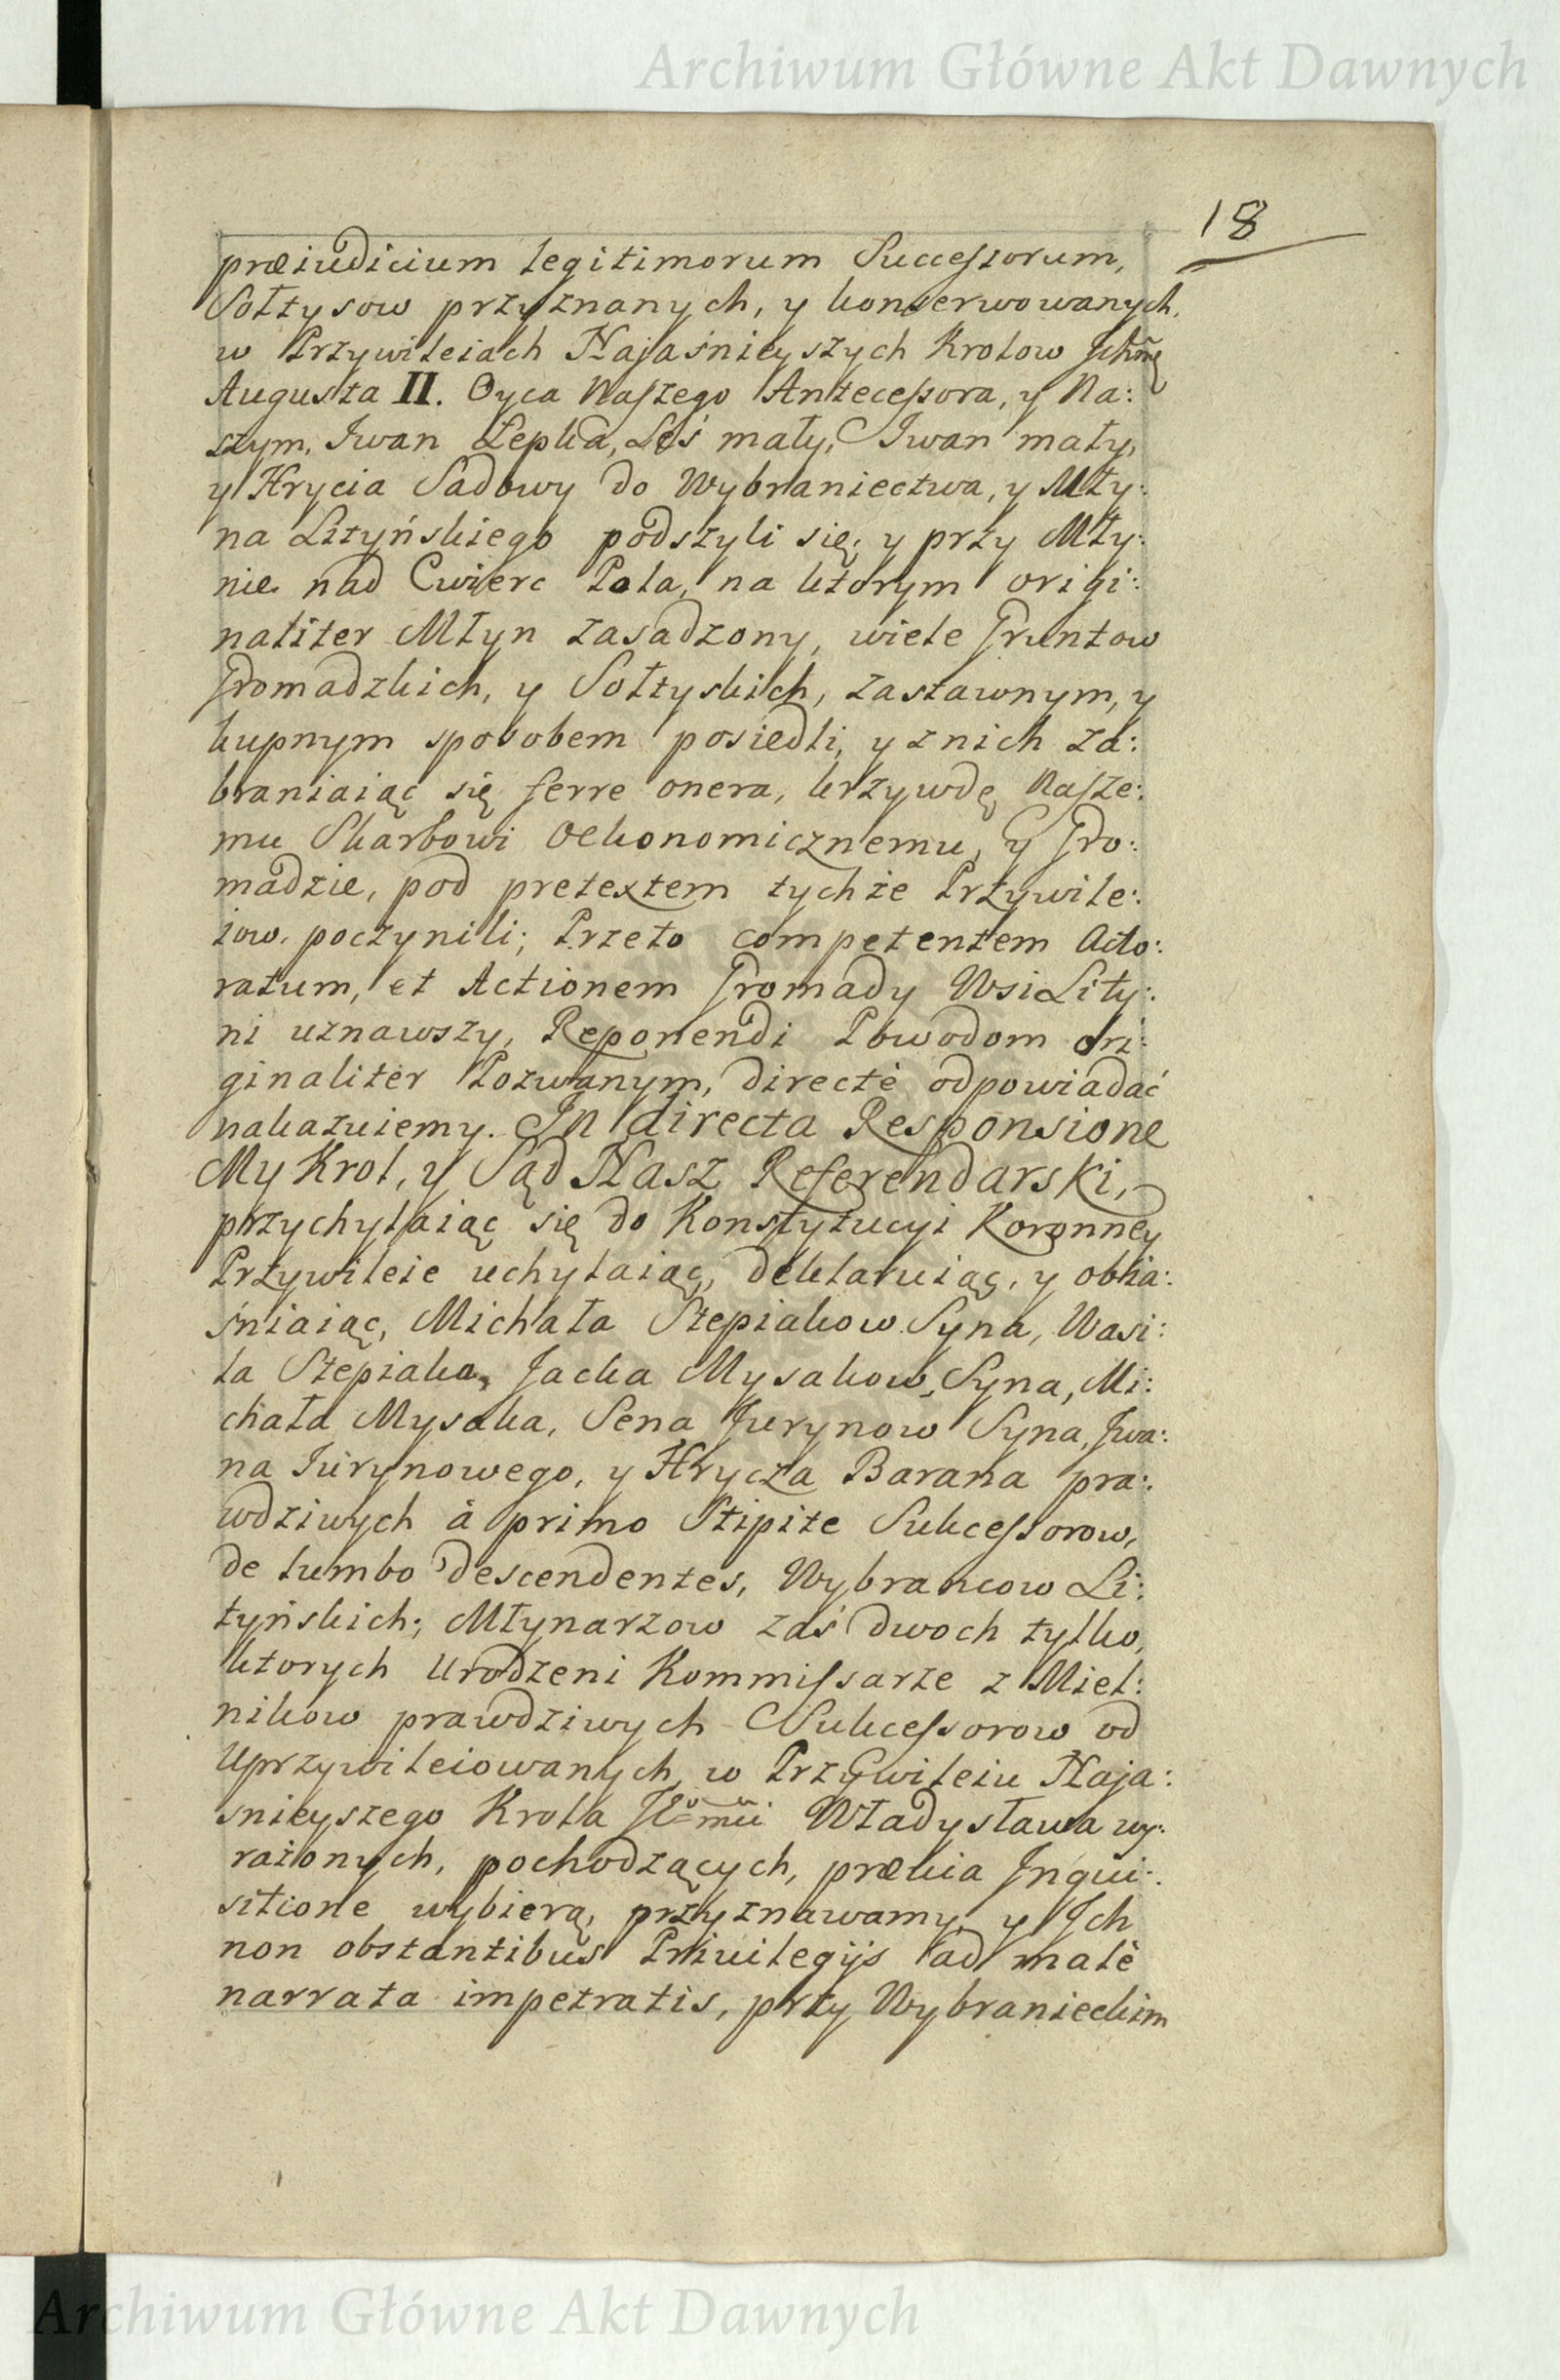 Archiwum Główne Akt Dawnych
18
præiudicium legitimorum Successorum,
Sołtysow przyznanych, y konserwowanych,
w Przywileiach Najaśnieyszych Krolow
Augusta II. Oyca Naszego Antecessora, y Na:
szym, Iwan Lepka, Leś mały, Iwan mały,
y Hrycia Sadowy do Wybraniectwa, y Mły:
na Lityńskiego podszyli się; y przy Mły:
nie nad Cwierc Pola, na ktorym origi:
naliter Młyn zasadzony, wiele Gruntow
Gromadzkich, y Sołtyskich, zastawnym, y
kupnym sposobem posiedli, y z nich za:
braniaiąc się ferre onera, krzywdę Nasze:
mu Skarbowi Oekonomicznemu, y Gro:
madzie, pod pretextem tychże Przywile:
iow. poczynili; Przeto competentem Acto:
ratum, et Actionem Gromady Wsi Lity:
ni uznawszy, Reponendi Powodom ori:
ginaliter Pozwanym, directè odpowiadać
nakazuiemy. In directa Responsione
My Krol, y Sąd Nasz Referendarski,
przychylaiąc się do Konstytucyi Koronney
Przywileie uchylaiąc, deklaruiąc, y obia:
śniaiąc, Michała Stepiakow Syna, Wasi:
la Stepiaka, Jacka Mysakow Syna, Mi:
chała Mysaka, Sena Jurynow Syna, Iwa:
na Iurynowego, y Hrycza Barana pra:
wdziwych à primo Stipite Sukcessorow,
de lumbo descendentes, Wybrancow Li:
tyńskich; Młynarzow zaś dwoch tylko,
ktorych Urodzeni Kommissarze z Miel:
nikow prawdziwych Sukcessorow od
Uprzywileiowanych, w Przywileiu Naja:
snieyszego Krola Władysława wy:
rażonych, pochodzących, prævia Inqui:
sitione wybiorą, przyznawamy, y Ich
non obstantibus Priuilegijs ad malè
narrata impetratis, przy Wybranieckim
Archiwum Główne Akt Dawnych